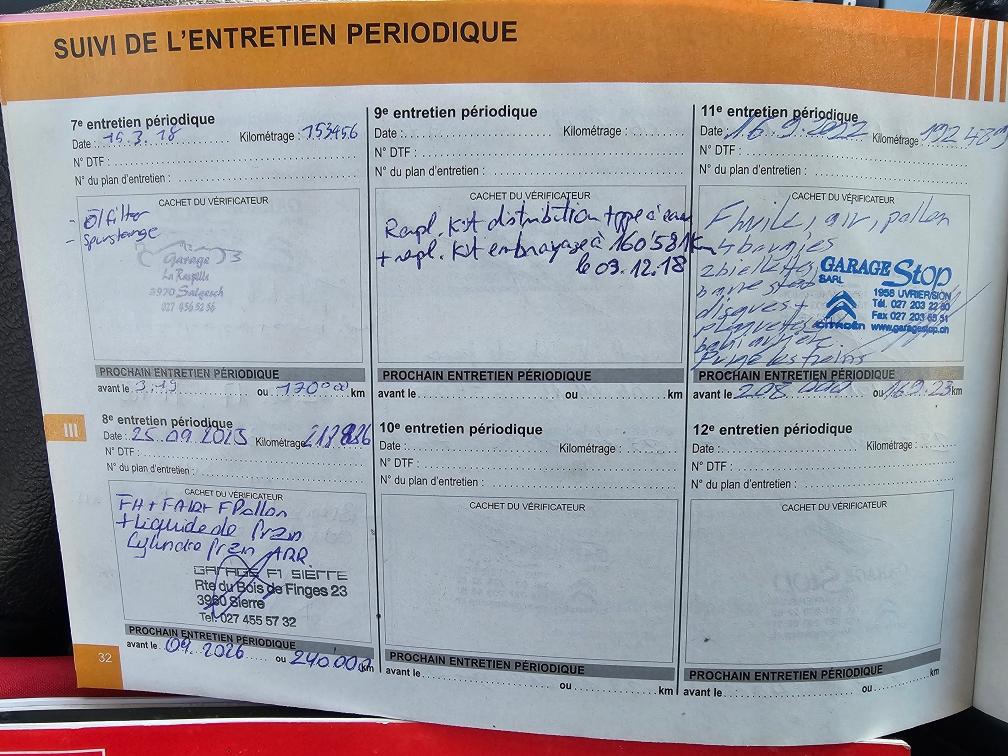 SUIVI DE L'ENTRETIEN PERIODIQUE
7e entretien périodique
Date : 15.3.18 Kilométrage : 153456
N° DTF :
N° du plan d'entretien :
CACHET DU VÉRIFICATEUR
- Ölfilter
- Spurstange
Garage
La Raspille
3970 Salgesch
027 456 52 56
PROCHAIN ENTRETIEN PÉRIODIQUE
avant le 3.19 ou 170000 km
8e entretien périodique
Date : 25.09.2025 Kilométrage
N° DTF :
N° du plan d'entretien :
CACHET DU VÉRIFICATEUR
FH + FAIR + F Pollen
+ Liquide de frein
Cylindre frein ARR.
GARAGE F1 SIERRE
Rte du Bois de Finges 23
3960 Sierre
Tel. 027 455 57 32
PROCHAIN ENTRETIEN PÉRIODIQUE
avant le 09.2026 ou 240 000 km
32
III
9e entretien périodique
Date : Kilométrage :
N° DTF :
N° du plan d'entretien :
CACHET DU VÉRIFICATEUR
Rempl. Kit distribution + ppe à eau
+ rempl. Kit embrayage à 160'581 Km
le 03.12.18
PROCHAIN ENTRETIEN PÉRIODIQUE
avant le ou km
10e entretien périodique
Date : Kilométrage :
N° DTF :
N° du plan d'entretien :
CACHET DU VÉRIFICATEUR
PROCHAIN ENTRETIEN PÉRIODIQUE
avant le ou km
11e entretien périodique
Date : 16.9.2022 Kilométrage : 192 489
N° DTF :
N° du plan d'entretien :
CACHET DU VÉRIFICATEUR
F huile, air, pollen
4 bougies
2 biellettes
barre stab
disques +
plaquettes
Purge les freins
GARAGE Stop
SARL
1958 UVRIER/SION
Tél. 027 203 22 80
Fax 027 203 65 51
CITROËN www.garagestop.ch
PROCHAIN ENTRETIEN PÉRIODIQUE
avant le 208.000 ou 169.23 km
12e entretien périodique
Date : Kilométrage :
N° DTF :
N° du plan d'entretien :
CACHET DU VÉRIFICATEUR
PROCHAIN ENTRETIEN PÉRIODIQUE
avant le ou km